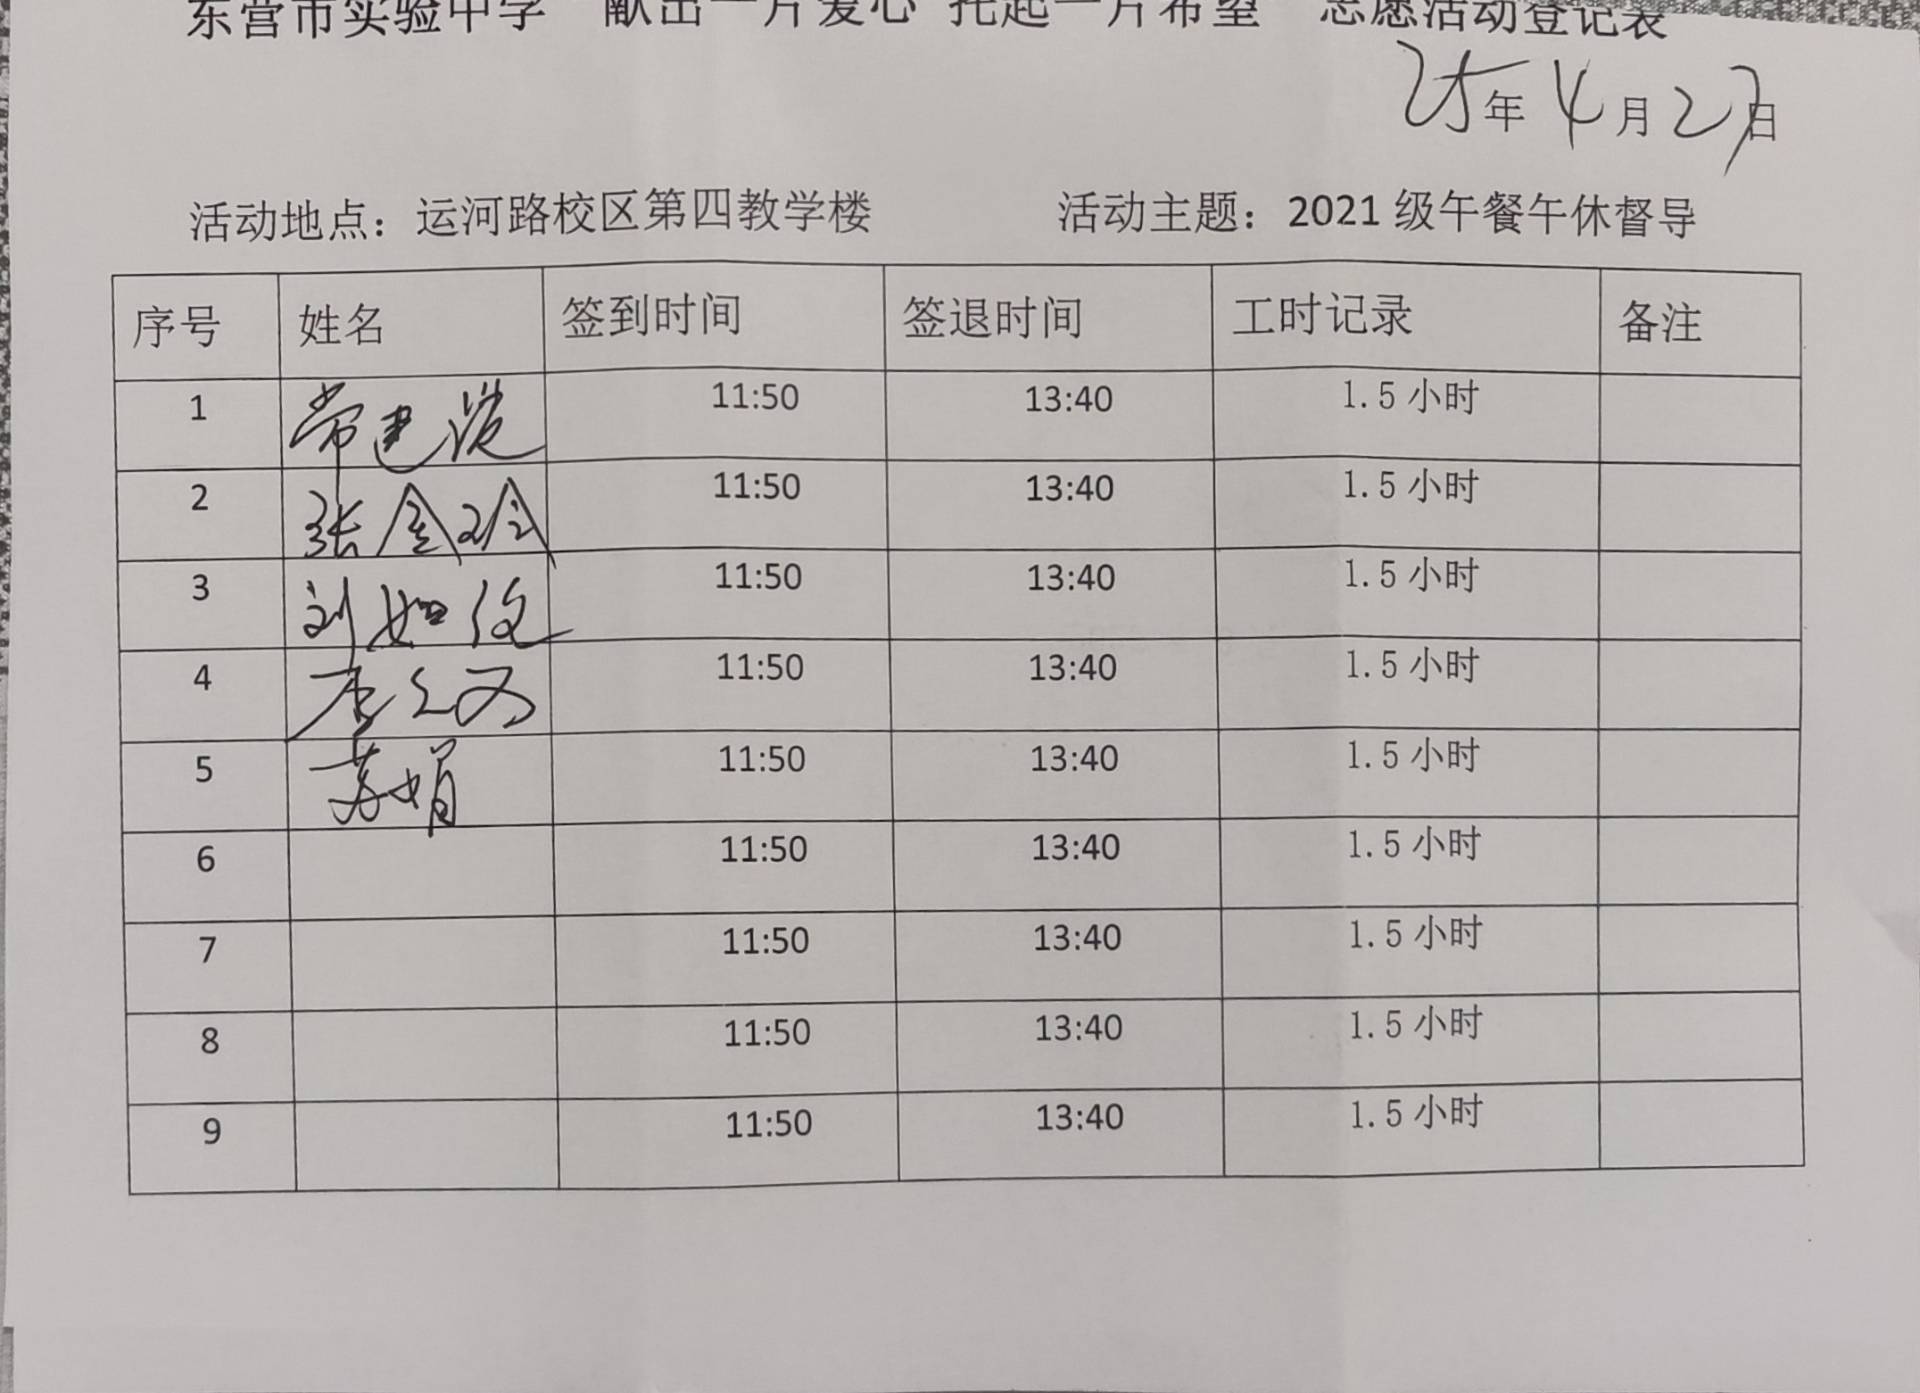 东营市实验中学 献出一片爱心 托起一片希望 志愿活动登记表
25年4月27日
活动地点：运河路校区第四教学楼 活动主题：2021级午餐午休督导
序号 姓名 签到时间 签退时间 工时记录 备注
1 常建 11:50 13:40 1.5小时
2 张金玲 11:50 13:40 1.5小时
3 刘如 11:50 13:40 1.5小时
4 11:50 13:40 1.5小时
5 苏娟 11:50 13:40 1.5小时
6 11:50 13:40 1.5小时
7 11:50 13:40 1.5小时
8 11:50 13:40 1.5小时
9 11:50 13:40 1.5小时